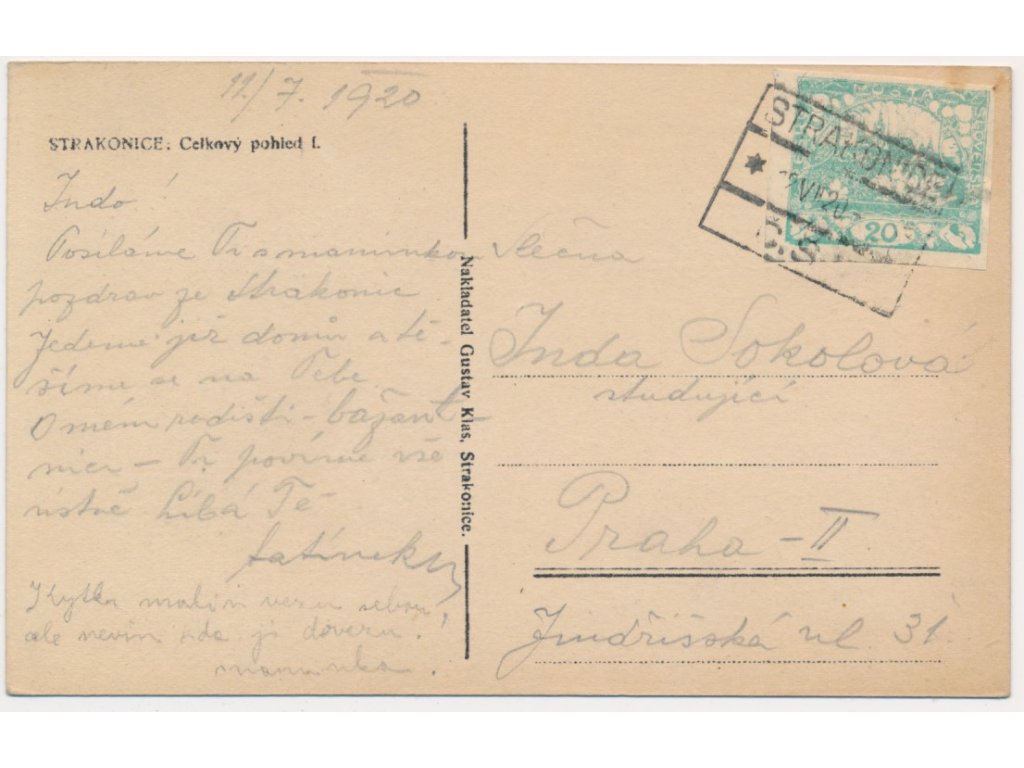 11/7. 1920
STRAKONICE: Celkový pohled I.
Indo!
Posíláme Ti s maminkou
pozdrav ze Strakonic
Jedeme již domů a tě-
šíme se na Tebe.
O mém rodišti - bažant-
nici - Ti povíme vše
ústně Líbá Tě
tatínek
Kytku malin vezu sebou,
ale nevím zda ji dovezu!
maminka.
Nakladatel Gustav Klas, Strakonice.
STRAKONICE
VII 20
Č.S.
20
Slečna
Inda Sokolová
studující
Praha - II
Jindřišská ul. 31